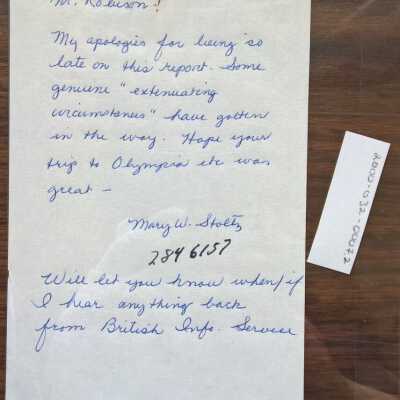 M. Robison!
My apologies for being so
late on this report. Some
genuine "extenuating
circumstances" have gotten
in the way. Hope your
trip to Olympia etc was
great —
Mary W. Stoltz
284 6157
Will let you know when/if
I hear anything back
from British Info. Service